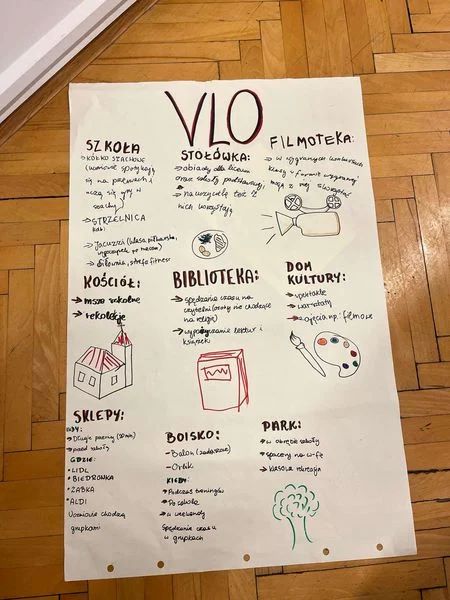 VLO
SZKOŁA
→ KÓŁKO SZACHOWE
(uczniowie spotykają
się na przerwach i
uczą się gry w
szachy)
→ STRZELNICA
→ Jacuzzi (klasa piłkarska,
→ siłownia, strefa fitness
STOŁÓWKA:
→ obiady dla liceum
oraz szkoły podstawowej
→ nauczyciele też z
nich korzystają
FILMOTEKA:
→ w wygranych konkursach
klasy w formie wygranej
mogą z niej skorzystać
KOŚCIÓŁ:
→ msze szkolne
→ rekolekcje
BIBLIOTEKA:
→ spędzanie czasu na
czytelni (osoby nie chodzące
na religię)
→ wypożyczanie lektur i
książek
DOM
KULTURY:
→ spektakle
→ warsztaty
→ zajęcia np: filmowe
SKLEPY:
→ Długie przerwy (20min)
→ przed szkołą
GDZIE:
• LIDL
• BIEDRONKA
• ŻABKA
• ALDI
Uczniowie chodzą
grupkami
BOISKO:
- Balon (zadaszone)
- Orlik
KIEDY:
→ Podczas treningów
→ Po szkole
→ w weekendy
Spędzanie czasu
w grupkach
PARK:
→ w obrębie szkoły
→ spacery na w-fie
→ klasowa rekreacja